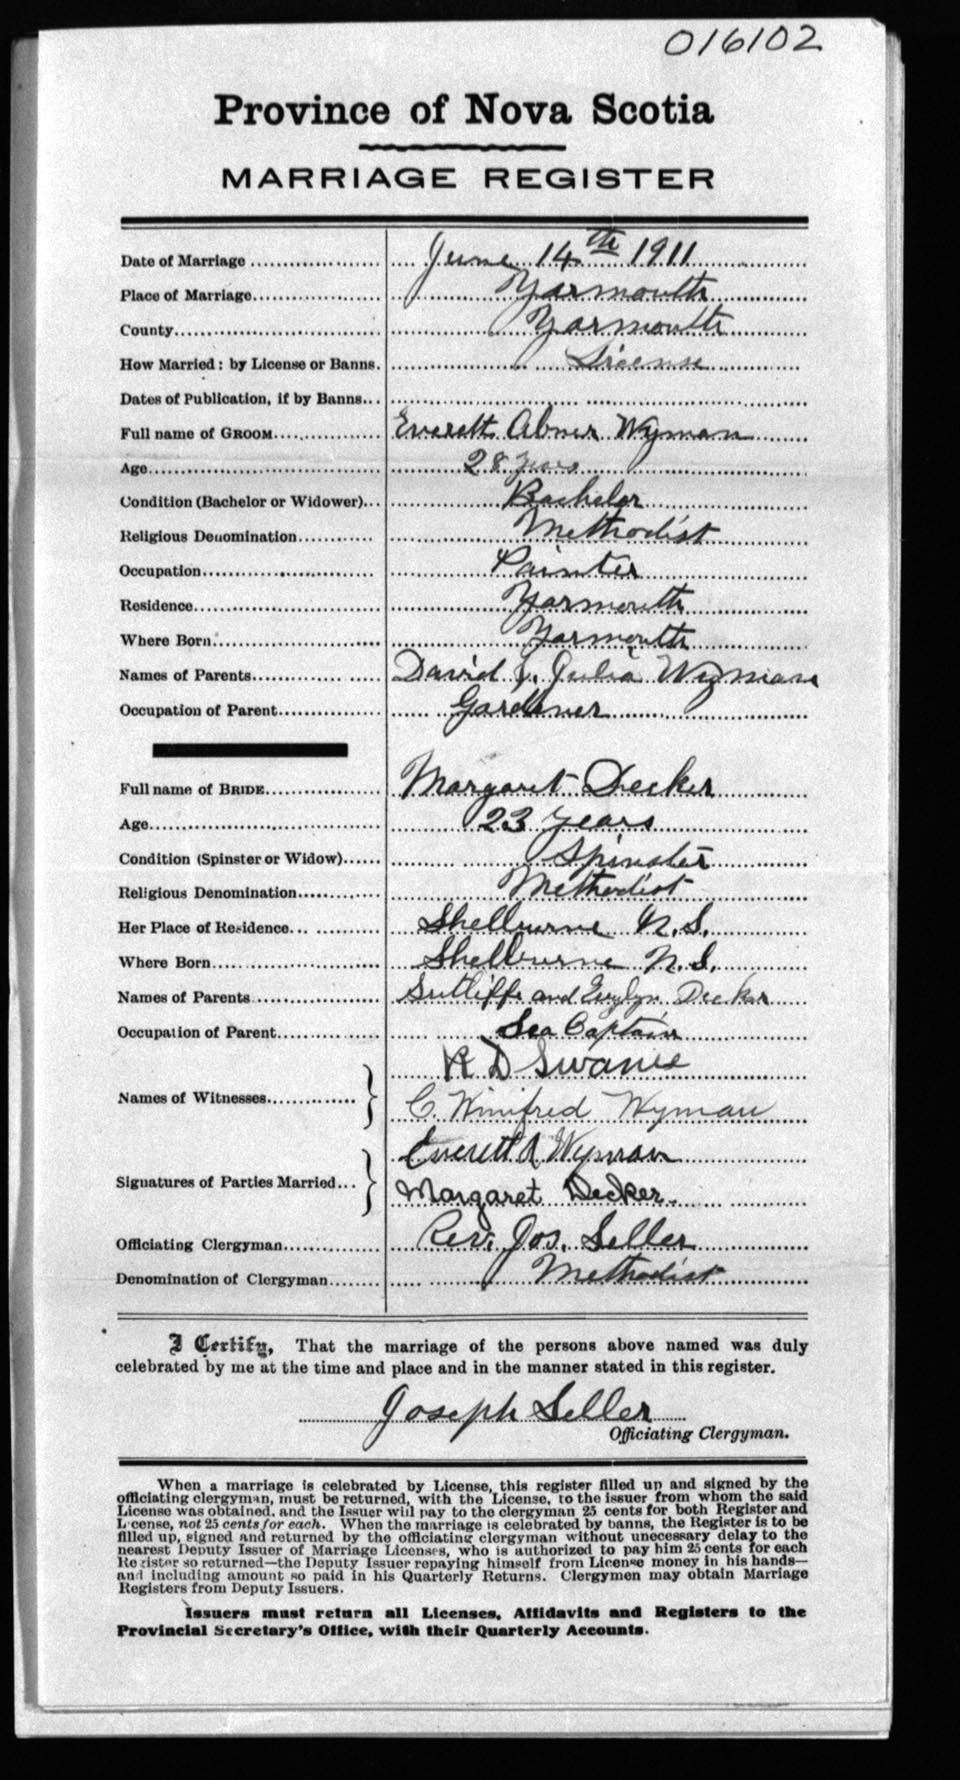 016102
Province of Nova Scotia
MARRIAGE REGISTER
Date of Marriage June 14th 1911
Place of Marriage Yarmouth
County Yarmouth
How Married: by License or Banns. License
Dates of Publication, if by Banns
Full name of GROOM Everett Abner Wyman
Age 28 years
Condition (Bachelor or Widower) Bachelor
Religious Denomination Methodist
Occupation Painter
Residence Yarmouth
Where Born Yarmouth
Names of Parents David & Julia Wyman
Occupation of Parent Gardener
Full name of BRIDE Margaret Decker
Age 23 years
Condition (Spinster or Widow) Spinster
Religious Denomination Methodist
Her Place of Residence Shelburne N.S.
Where Born Shelburne N.S.
Names of Parents Sutliffe and Evylyn Decker
Occupation of Parent Sea Captain
Names of Witnesses R D Swaine
C. Winifred Wyman
Signatures of Parties Married Everett A Wyman
Margaret Decker.
Officiating Clergyman Rev. Jos. Seller
Denomination of Clergyman Methodist
I Certify, That the marriage of the persons above named was duly
celebrated by me at the time and place and in the manner stated in this register.
Joseph Seller
Officiating Clergyman.
When a marriage is celebrated by License, this register filled up and signed by the
officiating clergyman, must be returned, with the License, to the issuer from whom the said
License was obtained, and the Issuer will pay to the clergyman 25 cents for both Register and
License, not 25 cents for each. When the marriage is celebrated by banns, the Register is to be
filled up, signed and returned by the officiating clergyman without unnecessary delay to the
nearest Deputy Issuer of Marriage Licenses, who is authorized to pay him 25 cents for each
Register so returned—the Deputy Issuer repaying himself from License money in his hands—
and including amount so paid in his Quarterly Returns. Clergymen may obtain Marriage
Registers from Deputy Issuers.
Issuers must return all Licenses, Affidavits and Registers to the
Provincial Secretary's Office, with their Quarterly Accounts.